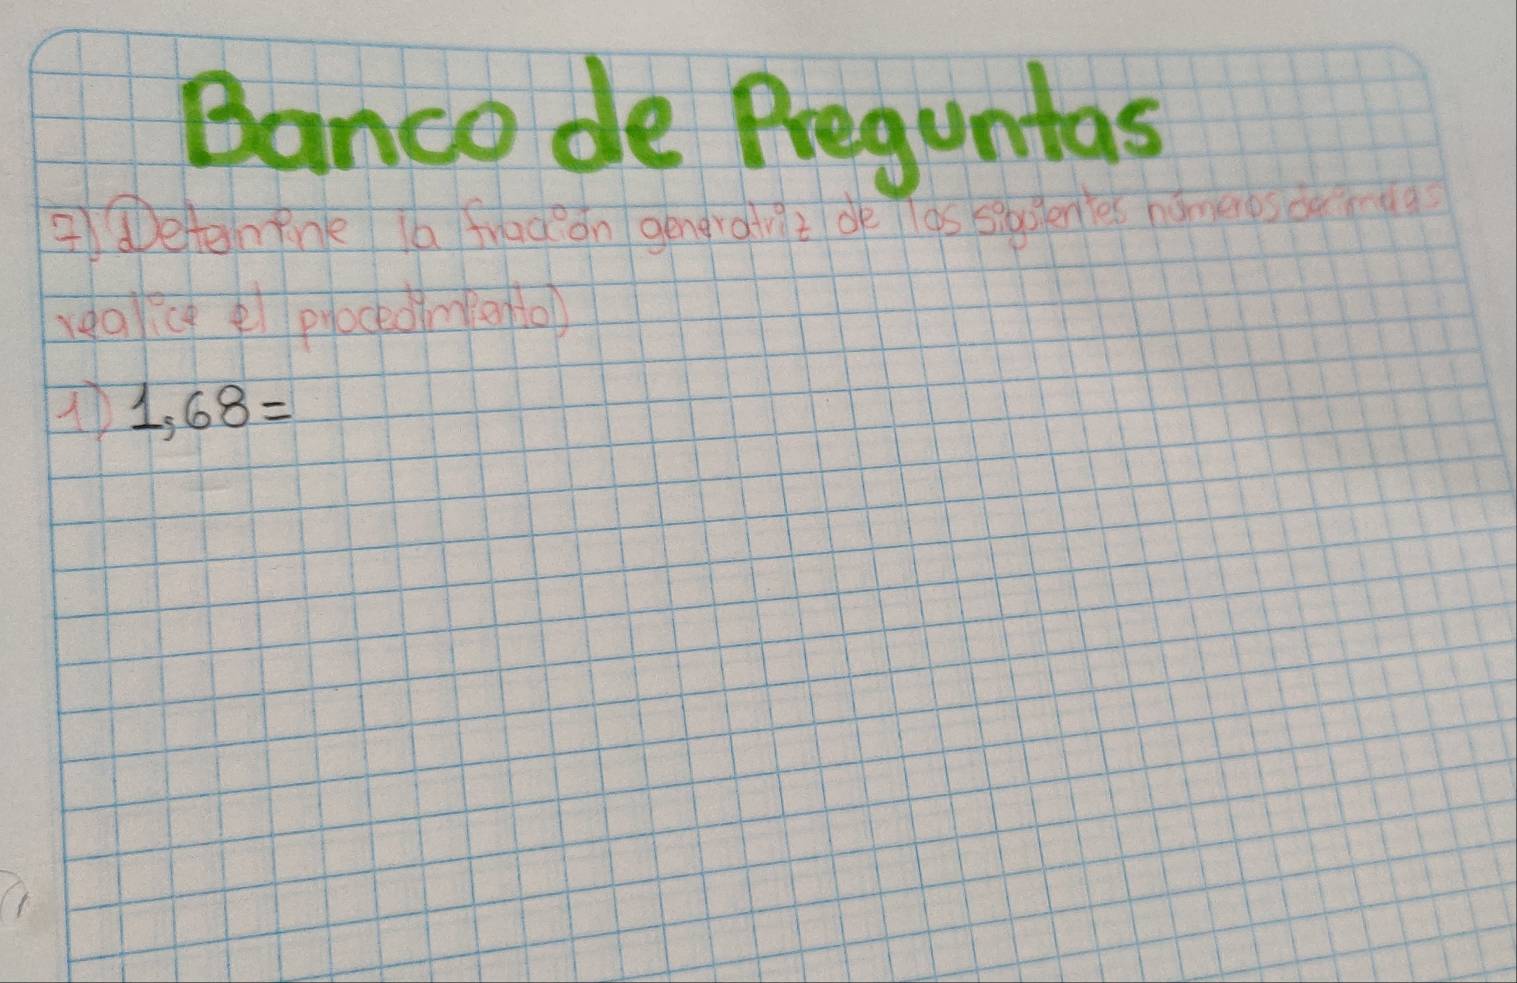 Banco de Preguntas
7) Determine la fracción generatriz de los siguientes números decimales
realice el procedimiento)
1) 1,68=